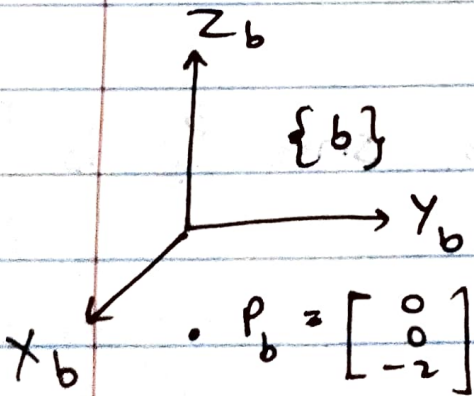 Z_b
{b}
Y_b
X_b
P_b = [0
0
-2]